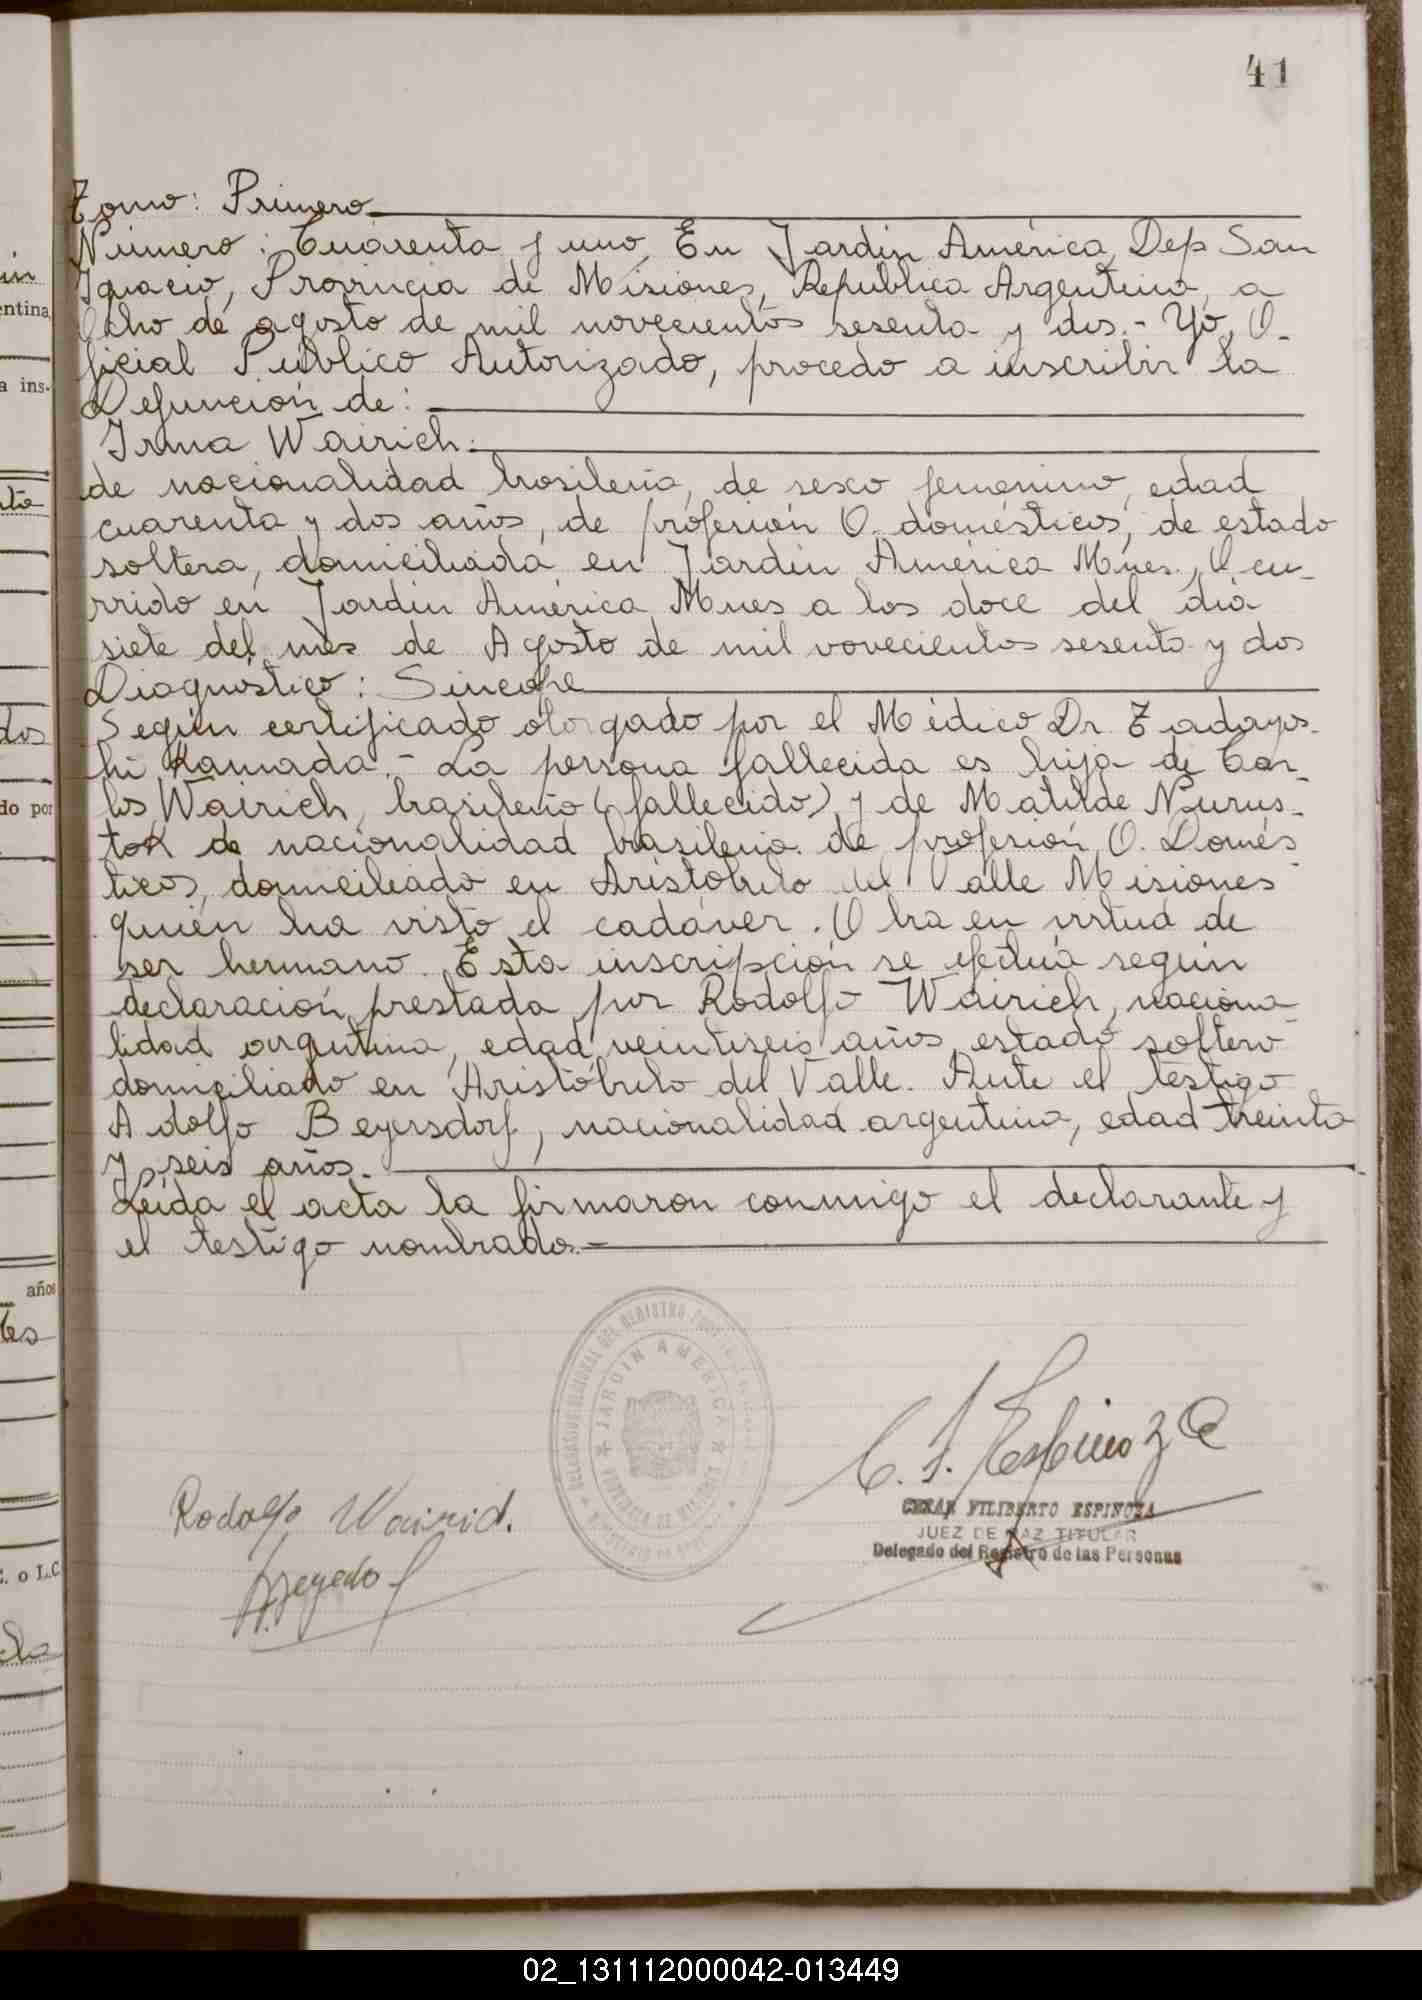 41
Tomo: Primero
Número: Cuarenta y uno, En Jardín América, Dep San
Ignacio, Provincia de Misiones, República Argentina, a
Ocho de agosto de mil novecientos sesenta y dos.- Yo, O-
ficial Público Autorizado, procedo a inscribir la
Defunción de:
Irma Wairich.
de nacionalidad brasileña, de sexo femenino, edad
cuarenta y dos años, de profesión O. domésticos, de estado
soltera, domiciliada en Jardín América Mnes., Ocu-
rrido en Jardín América Mnes a las doce del día
siete del mes de Agosto de mil novecientos sesenta y dos
Diagnóstico: Sincope
Según certificado otorgado por el Médico Dr. Tadayos-
hi Kamada.- La persona fallecida es hija de Car-
los Wairich, brasileño (fallecido) y de Matilde Nurus-
tok de nacionalidad brasileña de profesión O. Domés
ticos, domiciliado en Aristóbulo del Valle Misiones
quien ha visto el cadáver. Obra en virtud de
ser hermano. Esta inscripción se efectúa según
declaración prestada por Rodolfo Wairich, naciona-
lidad argentina, edad veintiseis años, estado soltero
domiciliado en Aristóbulo del Valle. Ante el testigo
Adolfo Beyersdorf, nacionalidad argentina, edad treinta
y seis años.
Leída el acta la firmaron conmigo el declarante y
el testigo nombrado.-
JARDIN AMERICA
PROVINCIA DE MISIONES
Rodolfo Wairich.
C. F. Espinoza
CESAR FILIBERTO ESPINOZA
JUEZ DE PAZ TITULAR
Delegado del Registro de las Personas
02_131112000042-013449